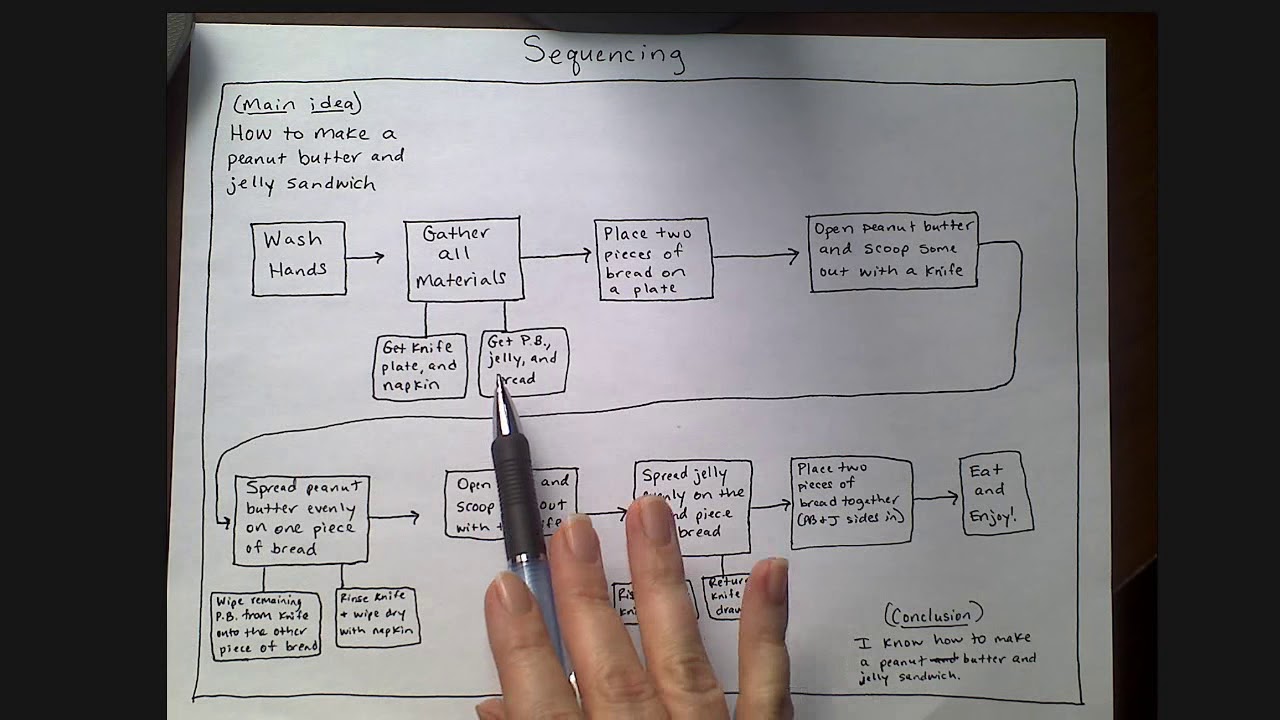 Sequencing
(Main idea)
How to make a
peanut butter and
jelly sandwich
Wash
Hands
Gather
all
Materials
Place two
pieces of
bread on
a plate
Open peanut butter
and scoop some
out with a knife
Get knife
plate, and
napkin
Get P.B.,
jelly, and
bread
Spread peanut
butter evenly
on one piece
of bread
Open and
scoop out
with
Spread jelly
evenly on the
piece
bread
Place two
pieces of
bread together
(PB+J sides in)
Eat
and
Enjoy!
Wipe remaining
P.B. from knife
onto the other
piece of bread
Rinse knife
+ wipe dry
with napkin
Return
knife
(Conclusion)
I know how to make
a peanut and butter and
jelly sandwich.